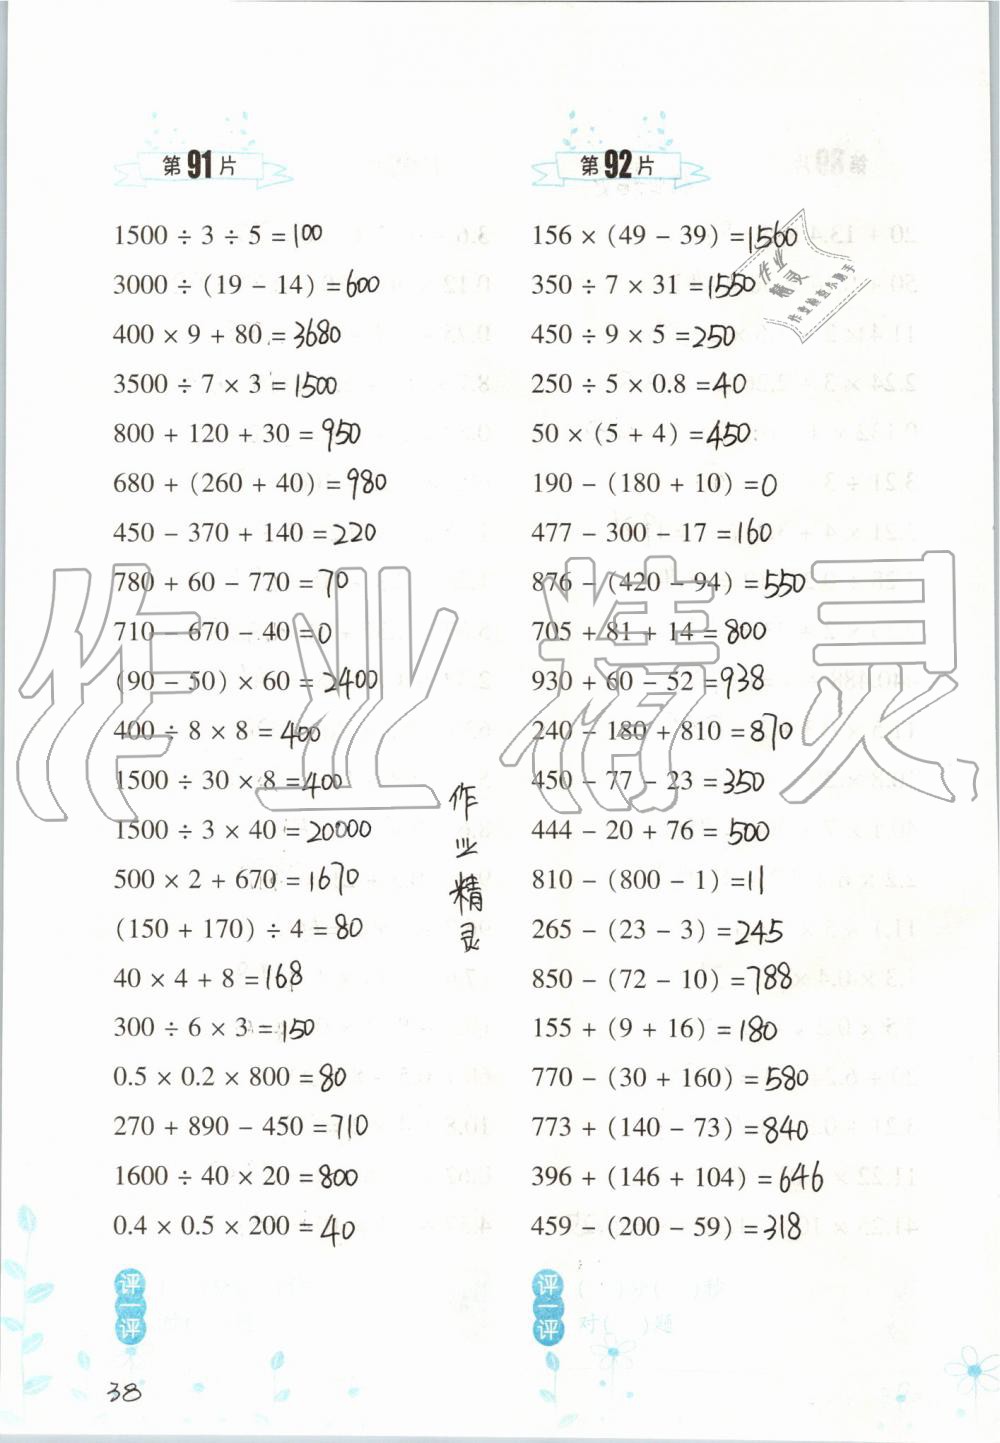 第91片
1500 ÷ 3 ÷ 5 = 100
3000 ÷ (19 - 14) = 600
400 × 9 + 80 = 3680
3500 ÷ 7 × 3 = 1500
800 + 120 + 30 = 950
680 + (260 + 40) = 980
450 - 370 + 140 = 220
780 + 60 - 770 = 70
710 - 670 - 40 = 0
(90 - 50) × 60 = 2400
400 ÷ 8 × 8 = 400
1500 ÷ 30 × 8 = 400
1500 ÷ 3 × 40 = 20000
500 × 2 + 670 = 1670
(150 + 170) ÷ 4 = 80
40 × 4 + 8 = 168
300 ÷ 6 × 3 = 150
0.5 × 0.2 × 800 = 80
270 + 890 - 450 = 710
1600 ÷ 40 × 20 = 800
0.4 × 0.5 × 200 = 40
评一评
38
作业精灵
第92片
156 × (49 - 39) = 1560
350 ÷ 7 × 31 = 1550
450 ÷ 9 × 5 = 250
250 ÷ 5 × 0.8 = 40
50 × (5 + 4) = 450
190 - (180 + 10) = 0
477 - 300 - 17 = 160
876 - (420 - 94) = 550
705 + 81 + 14 = 800
930 + 60 - 52 = 938
240 - 180 + 810 = 870
450 - 77 - 23 = 350
444 - 20 + 76 = 500
810 - (800 - 1) = 11
265 - (23 - 3) = 245
850 - (72 - 10) = 788
155 + (9 + 16) = 180
770 - (30 + 160) = 580
773 + (140 - 73) = 840
396 + (146 + 104) = 646
459 - (200 - 59) = 318
评一评
作业
精灵
作业精灵